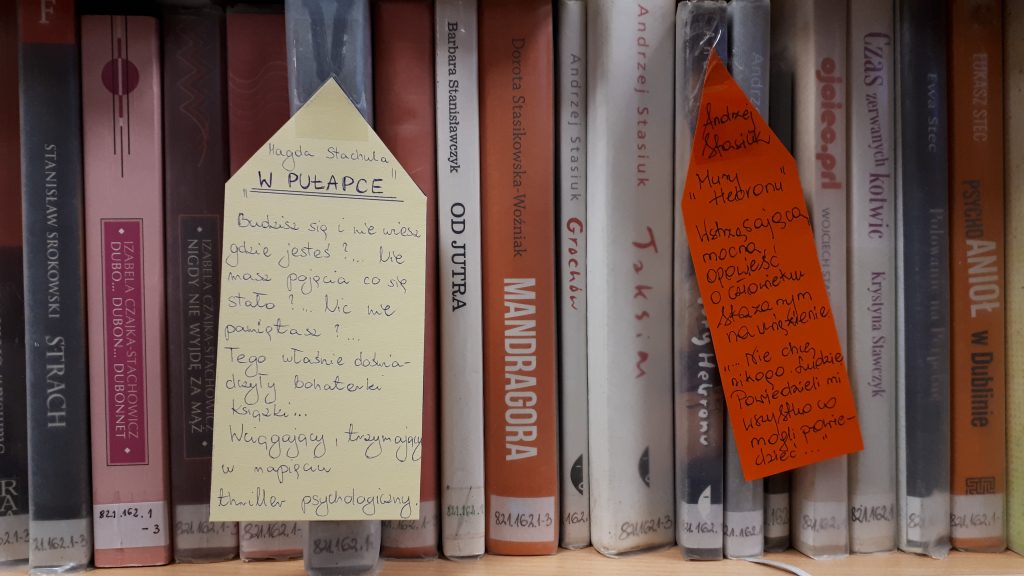 STANISŁAW SROKOWSKI
STRACH
821.162.1-3
IZABELA CZAJKA-STACHOWICZ
DUBO... DUBON... DUBONNET
821.162.1
-3
IZABELA CZAJKA-STACHOWICZ
NIGDY NIE WYJDĘ ZA MĄŻ
821.162.1-3
Magda Stachula
"W PUŁAPCE"
Budzisz się i nie wiesz
gdzie jesteś?... Nie
masz pojęcia co się
stało?... Nic nie
pamiętasz?...
Tego właśnie doświad-
czyły bohaterki
książki...
Wciągający, trzymający
w napięciu
thriller psychologiczny.
821.162.1-3
Barbara Stanisławczyk
OD JUTRA
821.162.1-3
Dorota Stasikowska-Woźniak
MANDRAGORA
821.162.1-3
Andrzej Stasiuk
Grochów
Andrzej Stasiuk
Taksim
821.162.1-3
Hebronu
821.162.1-3
Andrzej
Stasiuk
"Mury
Hebronu"
Wstrząsająca,
mocna
opowieść
o człowieku
skazanym
na więzienie.
"... Nie chcę
nikogo
Powiedzieli mi
wszystko co
mogli powie-
dzieć..."
ojciec.prl
WOJCIECH
Czas zerwanych kotwic
Krystyna Sławczyk
Ewa Stec
Polowanie na
ŁUKASZ STEC
PSYCHOANIOŁ w Dublinie